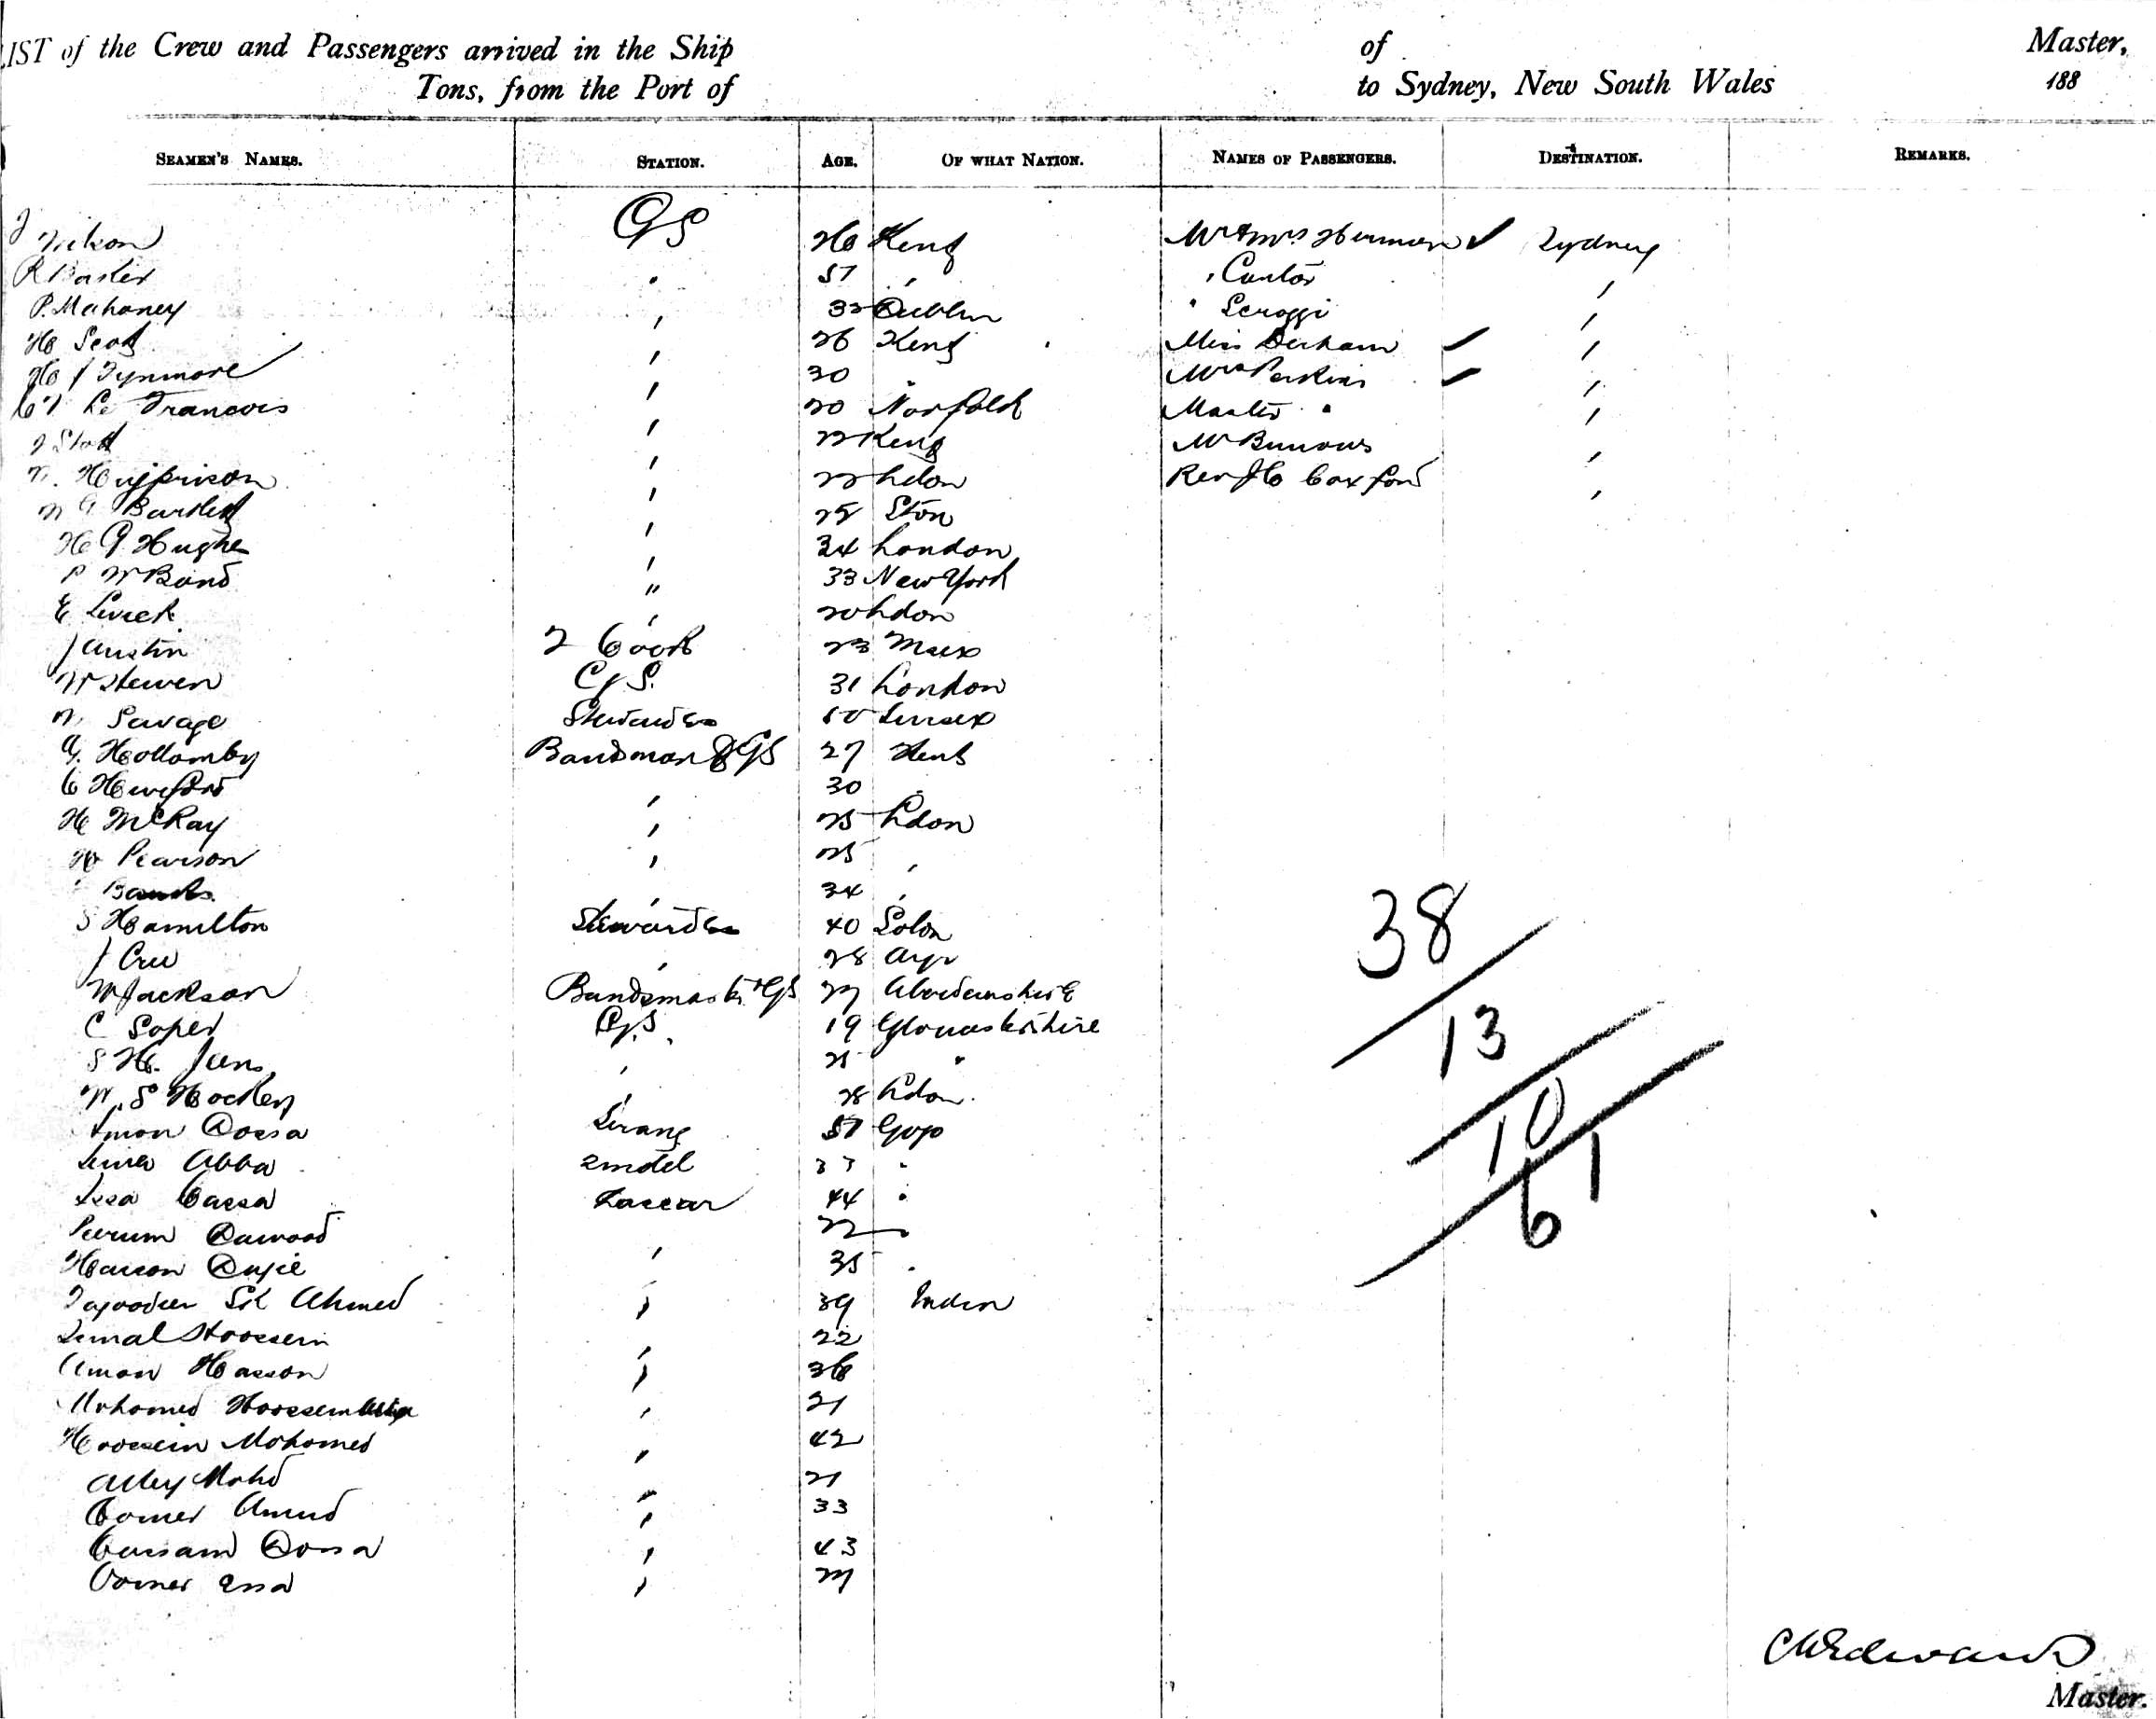 LIST of the Crew and Passengers arrived in the Ship of Master,
Tons, from the Port of to Sydney, New South Wales 188
SEAMEN'S NAMES. STATION. AGE. OF WHAT NATION. NAMES OF PASSENGERS. DESTINATION. REMARKS.
GS 26 Kent Mr & Mrs Herman ✓ Sydney
R Baxter " 51 " " Cantor
P. Mahoney " 32 Dublin " Scroggi "
H Scott " 26 Kent Miss Derham ✓ "
H J Tynmore " 30 " Mrs Perkins ✓ "
Le Francois " 20 Norfolk Master " "
Stott " 22 Kent Mr Burrows "
" 22 Ldon Rev J C Coxford "
Bartlett " 25
H G Hughes " 34 London
P W Bond " 33 New York
E Levick " 20 Ldon
J Austin 2 Cook 23 Msex
W Hewen G S. 31 London
Savage Stewardess 50 Sussex
G. Hollomby Bandsman & GS 27 Kent
C Hereford " 30 "
H McKay " 25 Ldon
H Pearson " 25 "
Banks " 34 "
S Hamilton Stewardess 40
J Cree " 28 Ayr
W Jackson Bandmaster & GS 27 Aberdeenshire
C Soper G.S. 19 Gloucestershire
S H. Jens " 21 "
W. S Hockey " 28 Ldon.
Amon Dossa Serang 51 Gogo
Abba Tindel 33 "
Issa Cassa Lascar 44 "
Peerum Dawood 22 "
Hasson Dujie " 35 "
Tajoodeen Sk Ahmed " 39 India
Jemal Hoossein " 22
Amon Hasson " 36
Mohomed Hoossein " 21
Hoossein Mohomed " 42
Alley Mohd " 21
Oomer Amud " 33
Cassam Dossa " 43
Oomer Essa " 27
38
13
10
61
C W Edwards
Master.